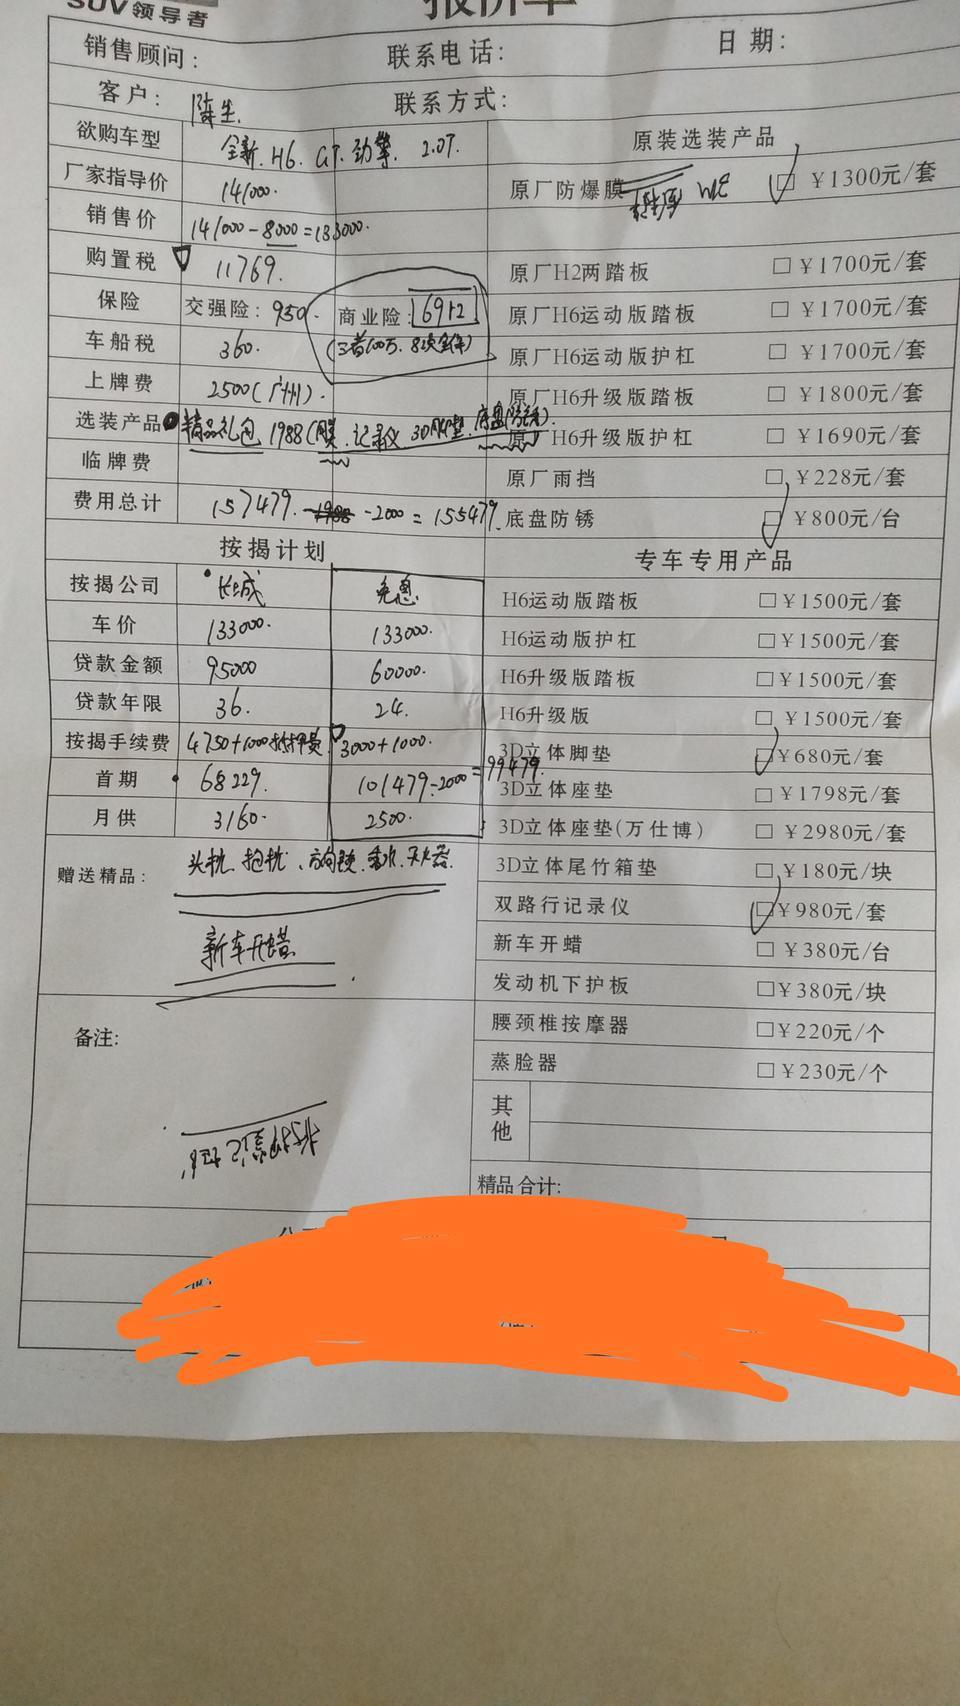 SUV领导者
报价单
销售顾问：
联系电话：
日期：
客户：陈生.
联系方式：
欲购车型 全新.H6.GT.劲擎.2.0T.
原装选装产品
厂家指导价 141000.
原厂防爆膜 □￥1300元/套
销售价 141000-8000=133000.
购置税 11769.
原厂H2两踏板 □￥1700元/套
保险 交强险：950. 商业险：6912
原厂H6运动版踏板 □￥1700元/套
车船税 360. (三者100万.
原厂H6运动版护杠 □￥1700元/套
上牌费 2500(广州)
原厂H6升级版踏板 □￥1800元/套
选装产品 精品礼包 1988(膜.记录仪 3D脚垫.底盘防锈).
原厂H6升级版护杠 □￥1690元/套
临牌费
原厂雨挡 □￥228元/套
费用总计 157479. -2000=155479.
底盘防锈 □￥800元/台
按揭计划
专车专用产品
按揭公司 长城 免息.
H6运动版踏板 □￥1500元/套
车价 133000. 133000.
H6运动版护杠 □￥1500元/套
贷款金额 95000 60000.
H6升级版踏板 □￥1500元/套
贷款年限 36. 24.
H6升级版 □￥1500元/套
按揭手续费 4750+1000抵押费 3000+1000.
3D立体脚垫 □￥680元/套
首期 68229. 101479-2000=99479.
3D立体座垫 □￥1798元/套
月供 3160. 2500.
3D立体座垫(万仕博) □￥2980元/套
赠送精品：头枕.抱枕.方向锁.香水.灭火器.
3D立体尾竹箱垫 □￥180元/块
双路行记录仪 □￥980元/套
新车开蜡
新车开蜡 □￥380元/台
发动机下护板 □￥380元/块
备注：
腰颈椎按摩器 □￥220元/个
蒸脸器 □￥230元/个
其他
精品合计：